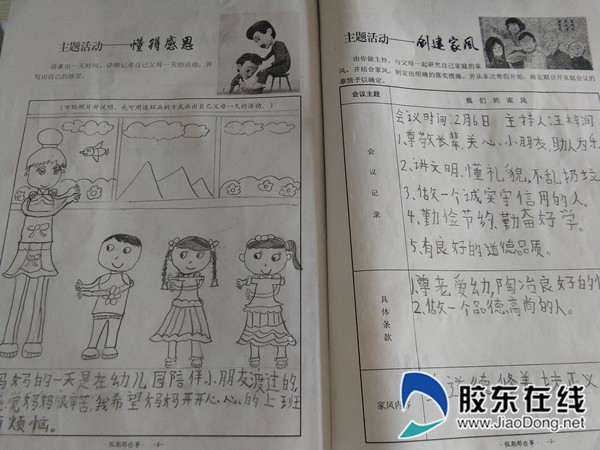 主题活动——懂得感恩
请拿出一天时间，详细记录自己父母一天的活动，并
写出自己的感受。
（可贴照片并说明，也可用连环画的方式画出自己父母一天的活动。）
妈妈的一天是在幼儿园陪伴小朋友渡过的,
觉妈妈很辛苦,我希望妈妈开开心心的上班
烦恼。
·假期那些事·
主题活动——创建家风
由你做主持，与父母一起研究自己家庭的家
风，并结合家风，制定出明确的落实措施，并从本次寒假开始，确定假日开家庭会议的
事情予以确定。
会议主题
我们的家风
会议记录
会议时间:2月6日 主持人:王梓润
1.尊敬长辈,关心小朋友,助人为乐
2.讲文明,懂礼貌,不乱扔垃
3.做一个诚实守信用的人。
4.勤俭节约,勤奋好学。
5.有良好的道德品质。
具体条款
1.尊老爱幼,陶冶良好的
2.做一个品德高尚的人。
家风内容
·假期那些事·
胶东在线
www.JiaoDong.net